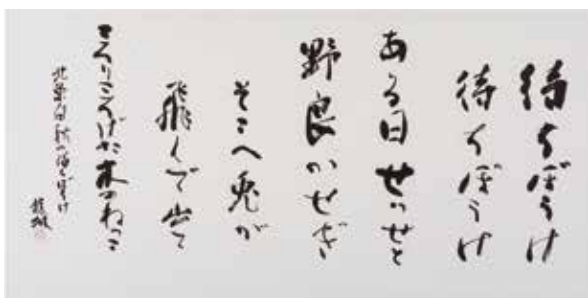 待ちぼうけ
待ちぼうけ
ある日せっせと
野良かせぎ
そこへ兎が
飛んで出て
ころりころげた木のねっこ
北原白秋の 待ちぼうけ